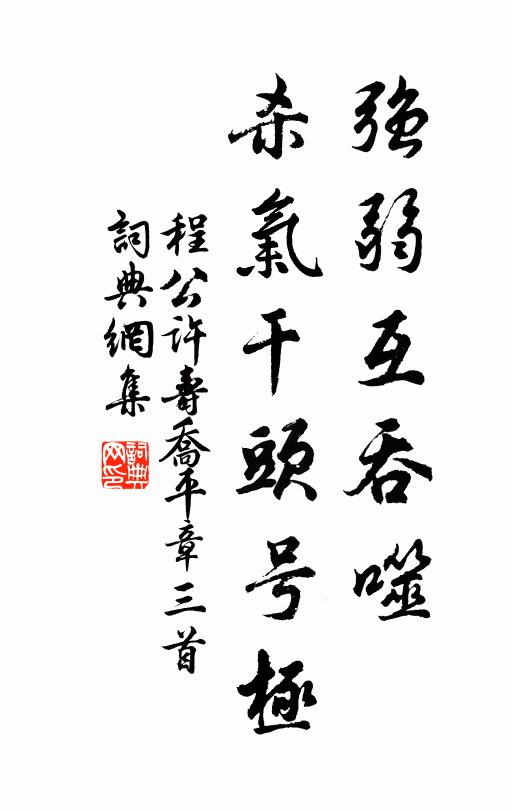 強弱互吞噬
杀氣干頭号極
程公許壽喬平章三首
詞典網集
詞典网印